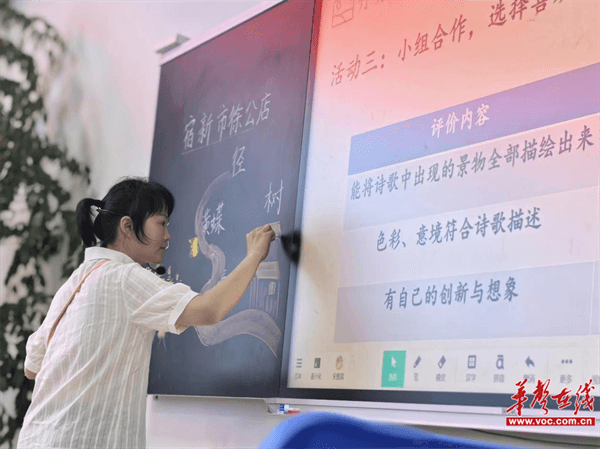 宿新市徐公店
径
树
黄蝶
活动三：小组合作，选择喜
评价内容
能将诗歌中出现的景物全部描绘出来
色彩、意境符合诗歌描述
有自己的创新与想象
选择
笔
汉字
拼音
更多
华声在线
www.voc.com.cn